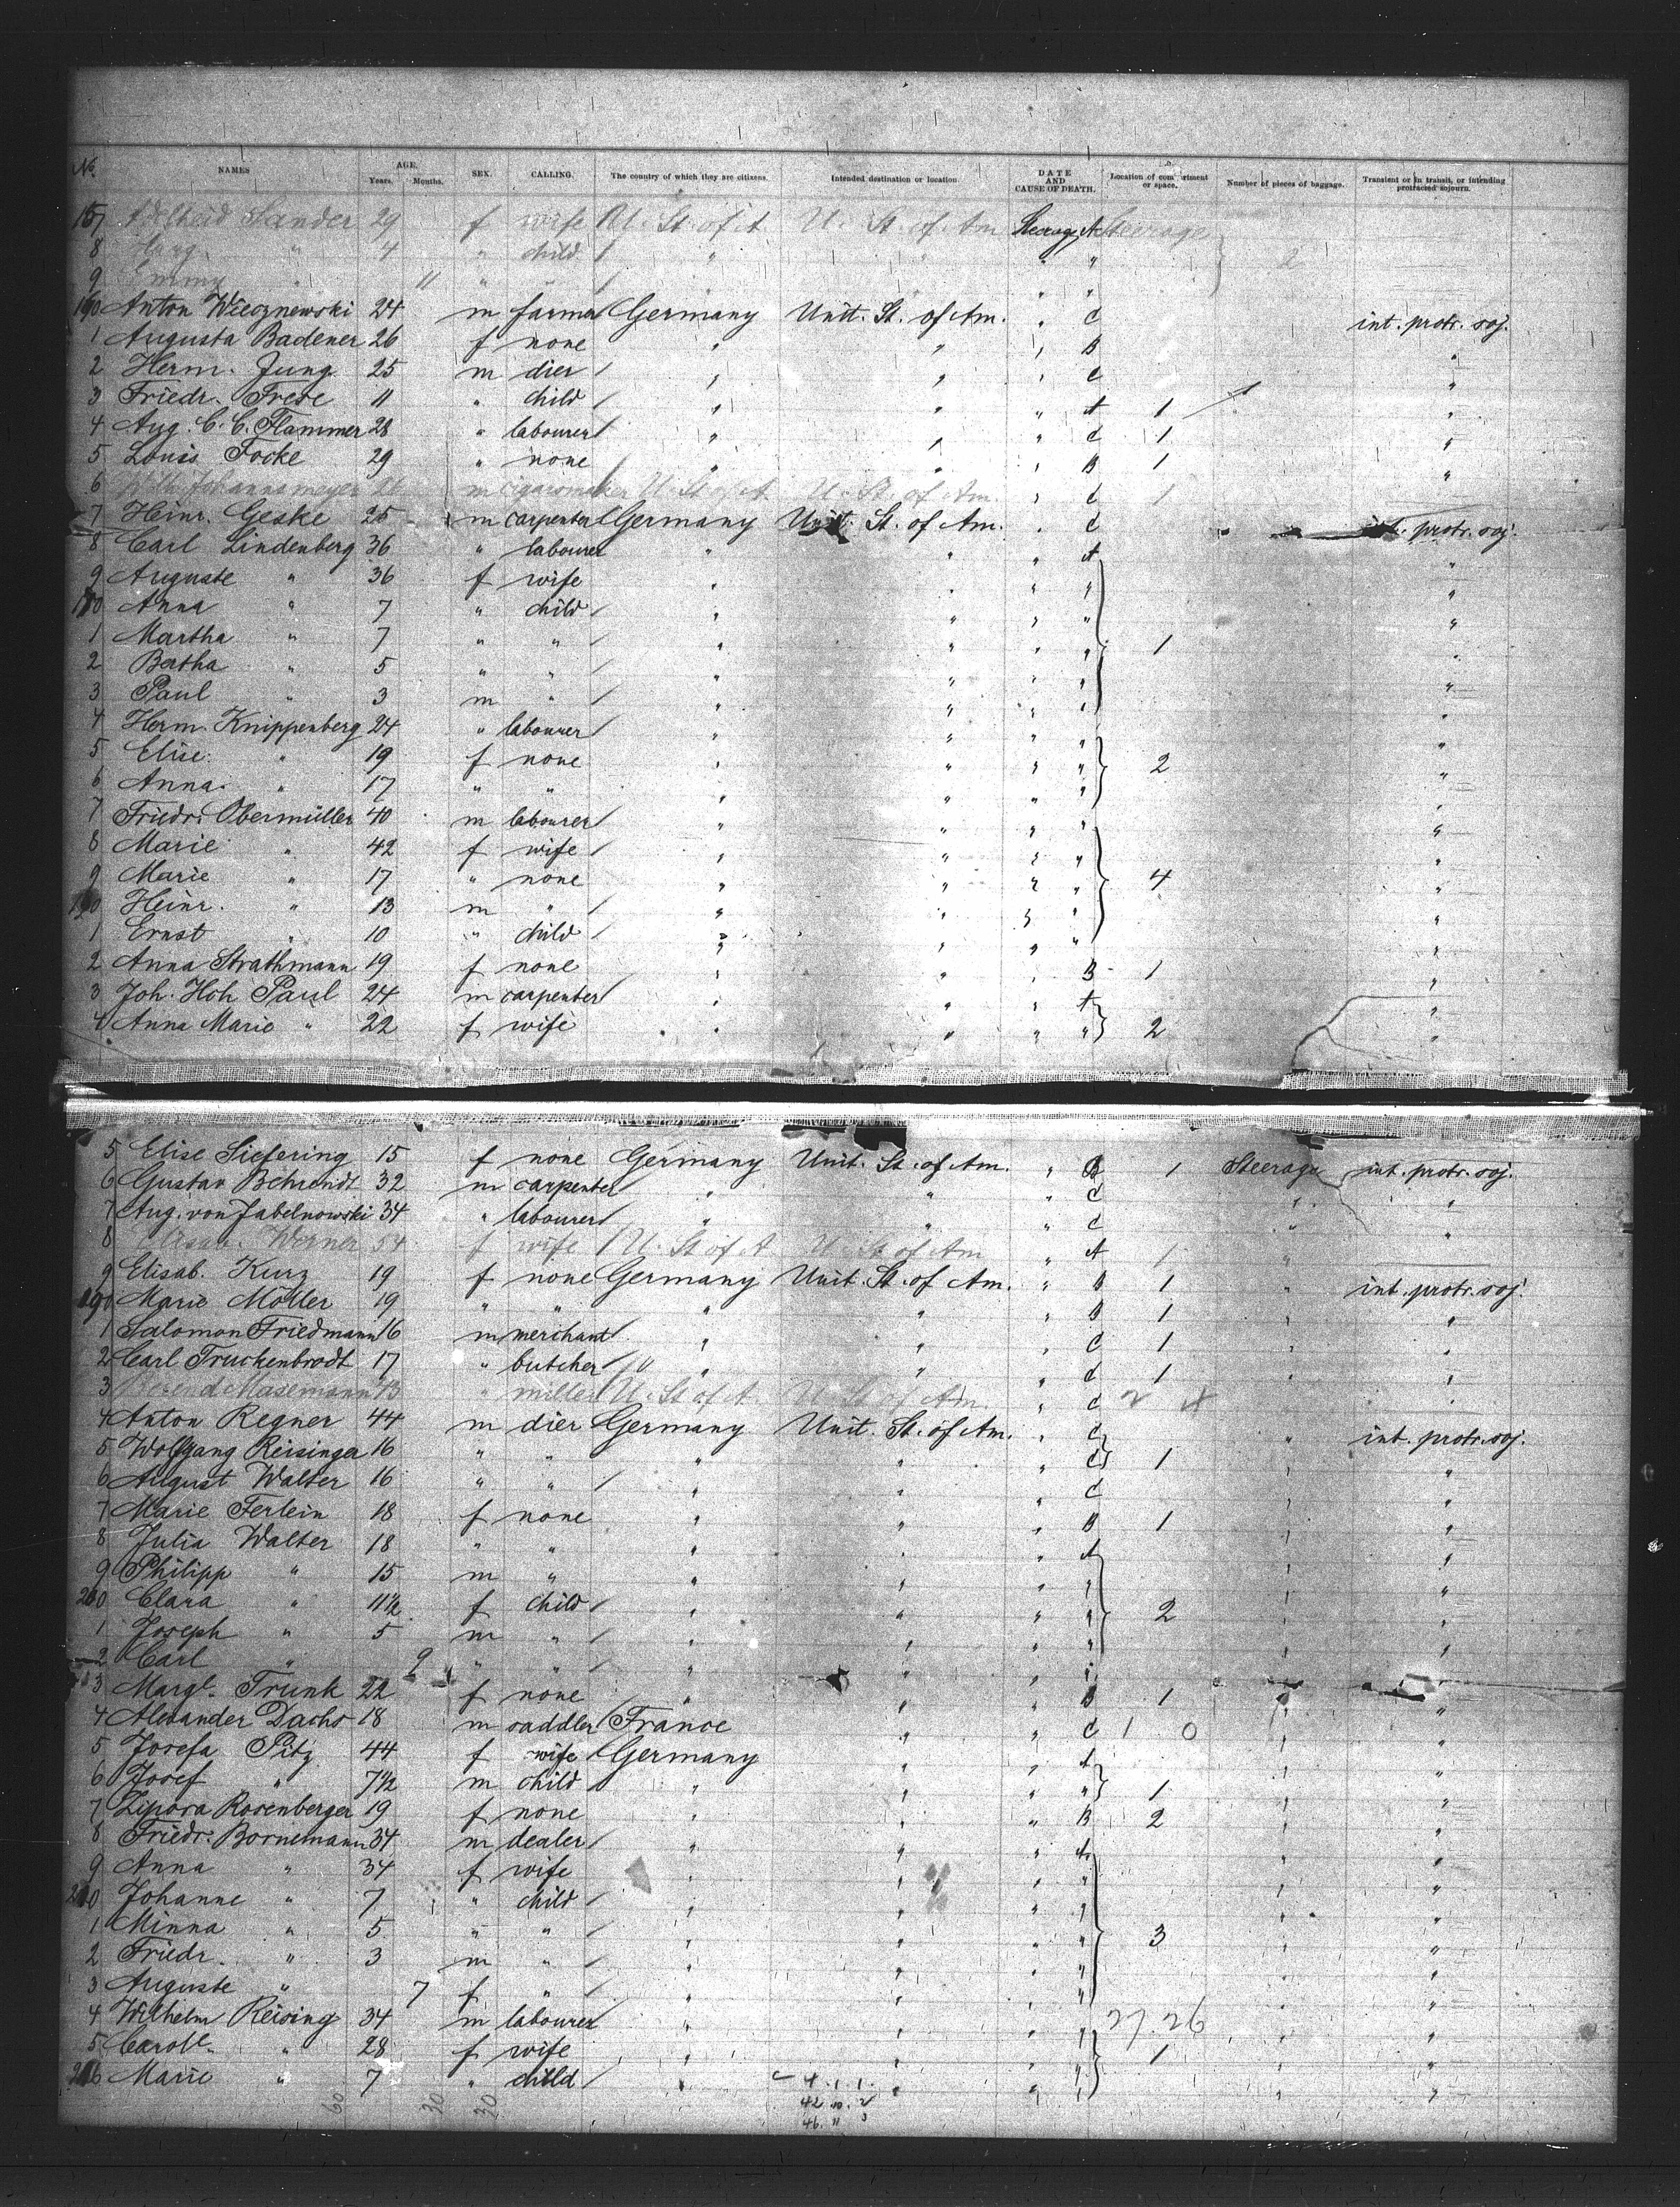 No. NAMES AGE. Years. Months. SEX. CALLING. The country of which they are citizens. Intended destination or location. DATE AND CAUSE OF DEATH. Location of compartment or space. Number of pieces of baggage. Transient or in transit, or intending protracted sojourn.
157 Adelheid Sander 29 f wife U. St. of A U. St. of Am Steerage A Steerage
8 Georg " 4 " child " " " " 2
9 Emmy " 11 " " "
Anton Wiecznewski 24 m farmer Germany Unit. St. of Am. " C int. protr. soj.
1 Augusta Badener 26 f none " " " B "
2 Herm. Jung 25 m dier " " " C "
3 Friedr. Frese 11 " child " " " A 1 "
4 Aug. C. C. Flammer 28 " labourer " " " C 1 "
5 Louis Focke 29 " none " " " B 1 "
6 Wilh. Johannsmeyer m cigarmaker U. St. of A U. St. of Am. " C 1
7 Heinr. Geske 25 m carpenter Germany Unit. St. of Am. " C int. protr. soj.
8 Carl Lindenberg 36 " labourer " " A "
9 Auguste " 36 f wife " " " " "
Anna " 7 " child " " " " "
1 Martha " 7 " " " " " " 1 "
2 Bertha " 5 " " " " " " "
3 Paul " 3 m " " " " " "
4 Herm. Knippenberg 24 " labourer " " " " "
5 Elise " 19 f none " " " " 2 "
6 Anna " 17 " " " " " " "
7 Friedr. Obermüller 40 m labourer " " " " "
8 Marie " 42 f wife " " " " "
9 Marie " 17 " none " " " " 4 "
Heinr. " 13 m " " " " " "
1 Ernst " 10 " child " " " " "
2 Anna Strathmann 19 f none " " " B 1 "
3 Joh. Hch. Paul 24 m carpenter " " " A "
4 Anna Marie " 22 f wife " " " " 2 "
5 Elise Siefering 15 f none Germany Unit. St. of Am. " B 1 Steerage int. protr. soj.
6 Gustav Behrendt 32 m carpenter " " " C " "
7 Aug. von Jabelnowski 34 " labourer " " " C " "
8 Werner 54 f wife U. St of A U. St of Am " A 1 "
9 Elisab. Kurz 19 f none Germany Unit. St. of Am. " B 1 " int. protr. soj.
190 Marie Möller 19 " " " " " B 1 " "
1 Salomon Friedmann 16 m merchant " " " C 1 " "
2 Carl Truckenbrodt 17 " butcher " " " C 1 " "
3 Berend Masemann " miller U. St of A. U. St of Am. " C 2
4 Anton Regner 44 m dier Germany Unit. St. of Am. " C " int. protr. soj.
5 Wolfgang Reisinger 16 " " " " " C 1 " "
6 August Walter 16 " " " " " C " "
7 Marie Ferlein 18 f none " " " B 1 " "
8 Julia Walter 18 " " " " " A " "
9 Philipp " 15 m " " " " " " "
200 Clara " 11½ f child " " " " 2 " "
1 Joseph " 5 m " " " " " " "
2 Carl " 9 " " " " " " " "
3 Margt. Trunk 22 f none " " " B 1 " "
4 Alexander Dachs 18 m saddler France " " C 1 0 " "
5 Josefa Pitz 44 f wife Germany " " A " "
6 Josef " 7½ m child " " " " 1 " "
7 Zipora Rosenberger 19 f none " " " B 2 " "
8 Friedr. Bornemann 34 m dealer " " " A " "
9 Anna " 34 f wife " " " " " "
210 Johanne " 7 " child " " " " " "
1 Minna " 5 " " " " " " 3 " "
2 Friedr. " 3 m " " " " " " "
3 Auguste " 7 f " " " " " " "
4 Wilhelm Reising 34 m labourer " " " " 27. 26 " "
5 Caroll. " 28 f wife " " " " 1 " "
216 Marie " 7 " child " " " " " "
4. 1. 1.
60 30 30 42. 10. 2
46. 11 3